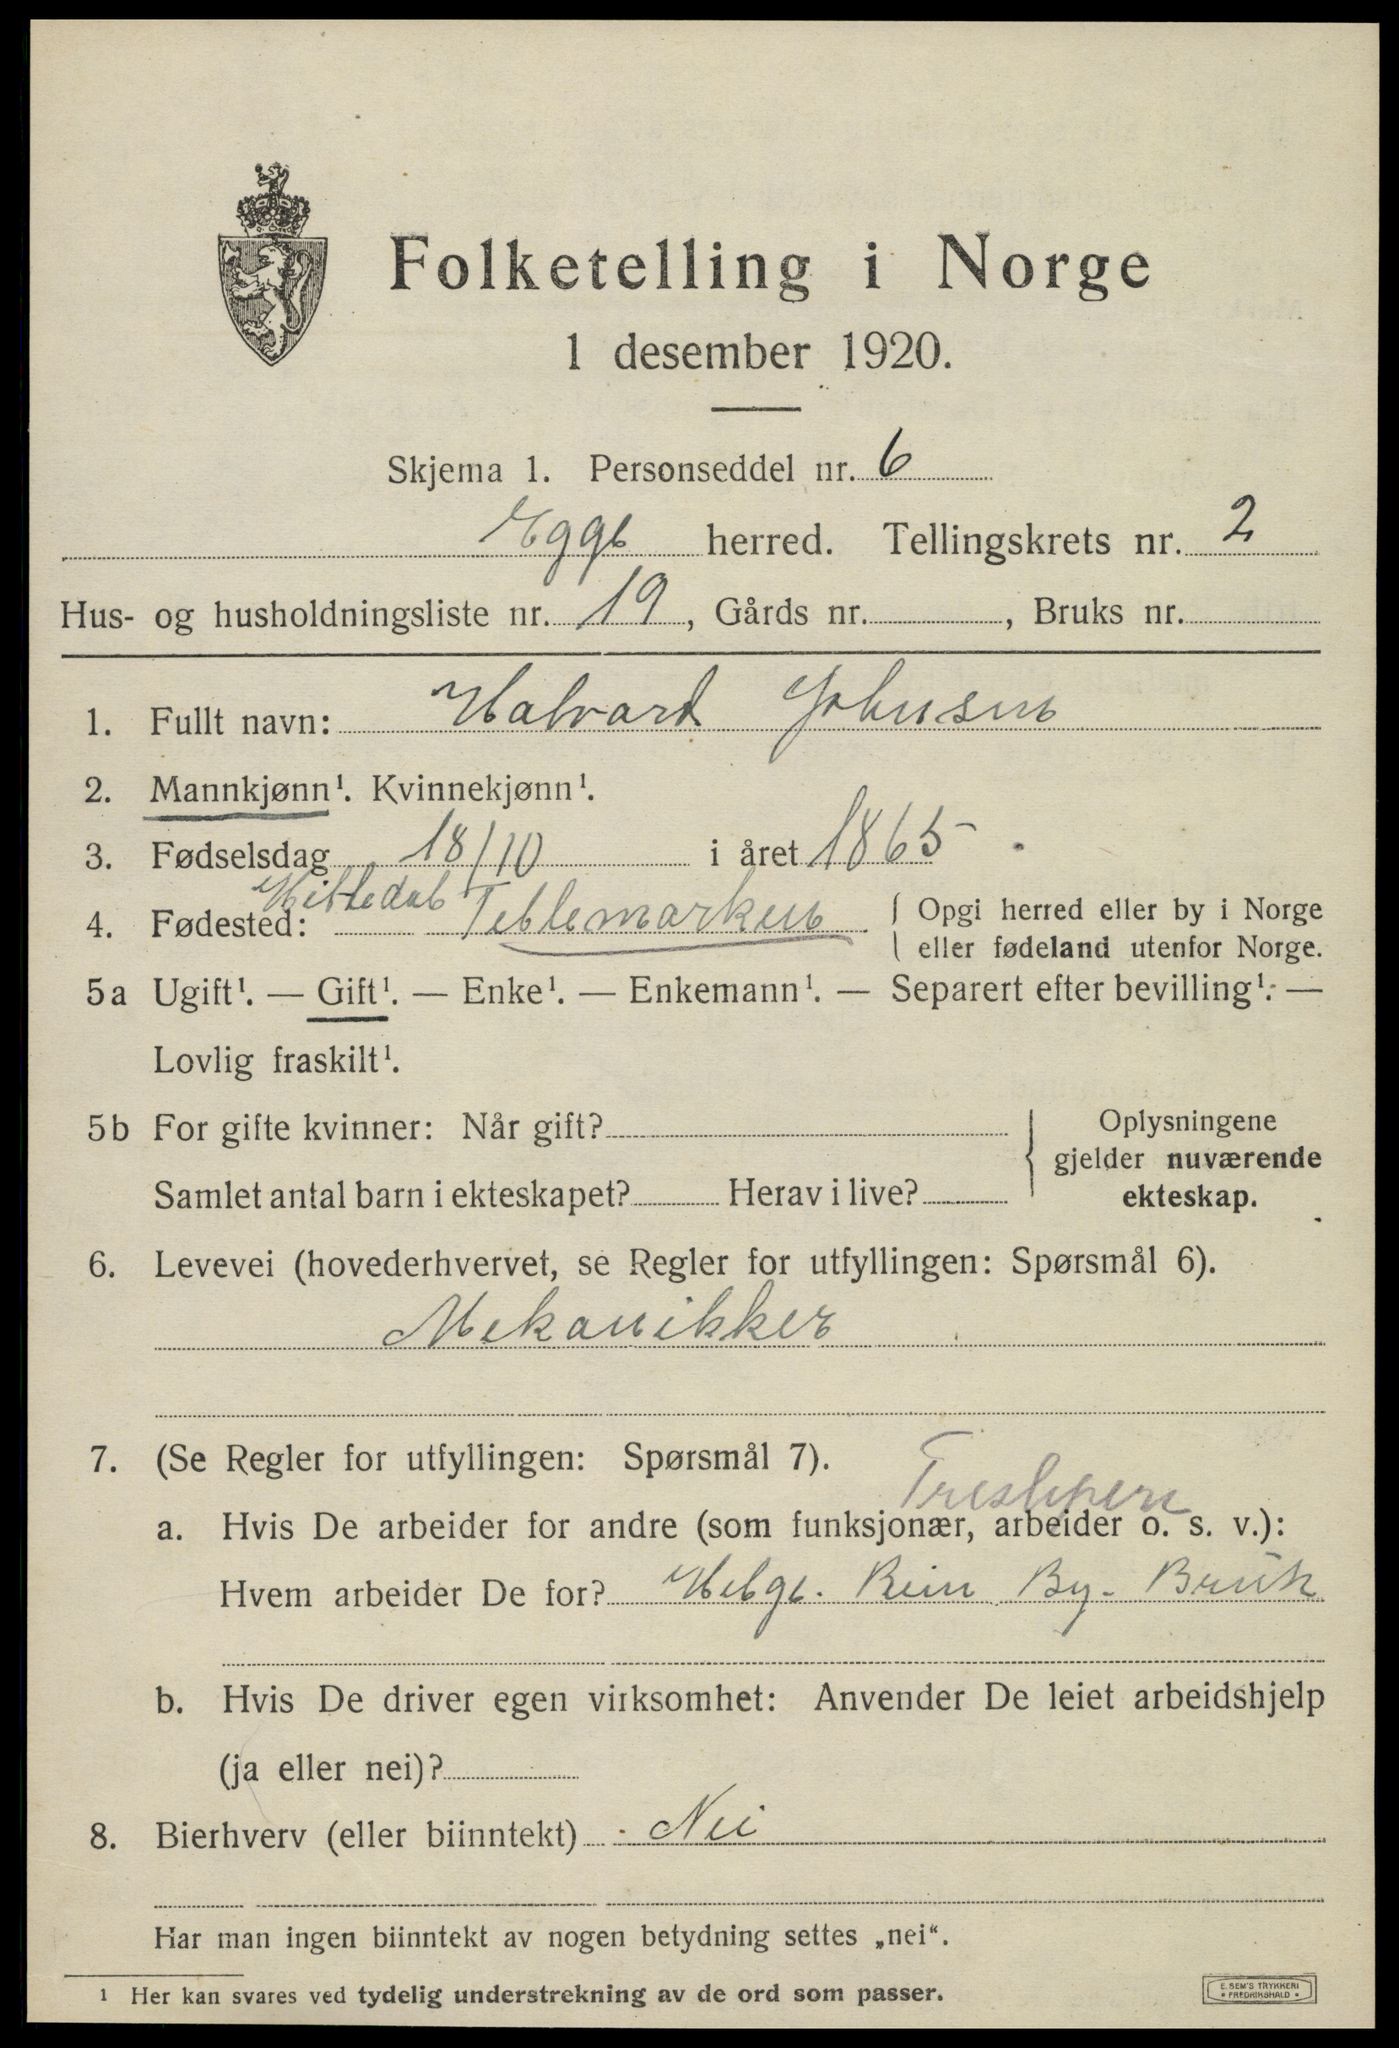 Folketelling i Norge
1 desember 1920.
Skjema 1. Personseddel nr. 6
Egge herred. Tellingskrets nr. 2
Hus- og husholdningsliste nr. 19, Gårds nr. , Bruks nr.
1. Fullt navn: Halvard Johnsen
2. Mannkjønn¹. Kvinnekjønn¹.
3. Fødselsdag 18/10 i året 1865
4. Fødested: Hitledal Tellemarken { Opgi herred eller by i Norge
{ eller fødeland utenfor Norge.
5a Ugift¹. — Gift¹. — Enke¹. — Enkemann¹. — Separert efter bevilling¹. —
Lovlig fraskilt¹.
5b For gifte kvinner: Når gift? Oplysningene
gjelder nuværende
Samlet antal barn i ekteskapet? Herav i live? ekteskap.
6. Levevei (hovederhvervet, se Regler for utfyllingen: Spørsmål 6).
Mekanikker
7. (Se Regler for utfyllingen: Spørsmål 7).
Tresliperi
a. Hvis De arbeider for andre (som funksjonær, arbeider o. s. v.):
Hvem arbeider De for? Helge. Rein By. Bruk
b. Hvis De driver egen virksomhet: Anvender De leiet arbeidshjelp
(ja eller nei)?
8. Bierhverv (eller biinntekt) Nei
Har man ingen biinntekt av nogen betydning settes „nei“.
¹ Her kan svares ved tydelig understrekning av de ord som passer.
E. SEM'S TRYKKERI
• FREDRIKSHALD •